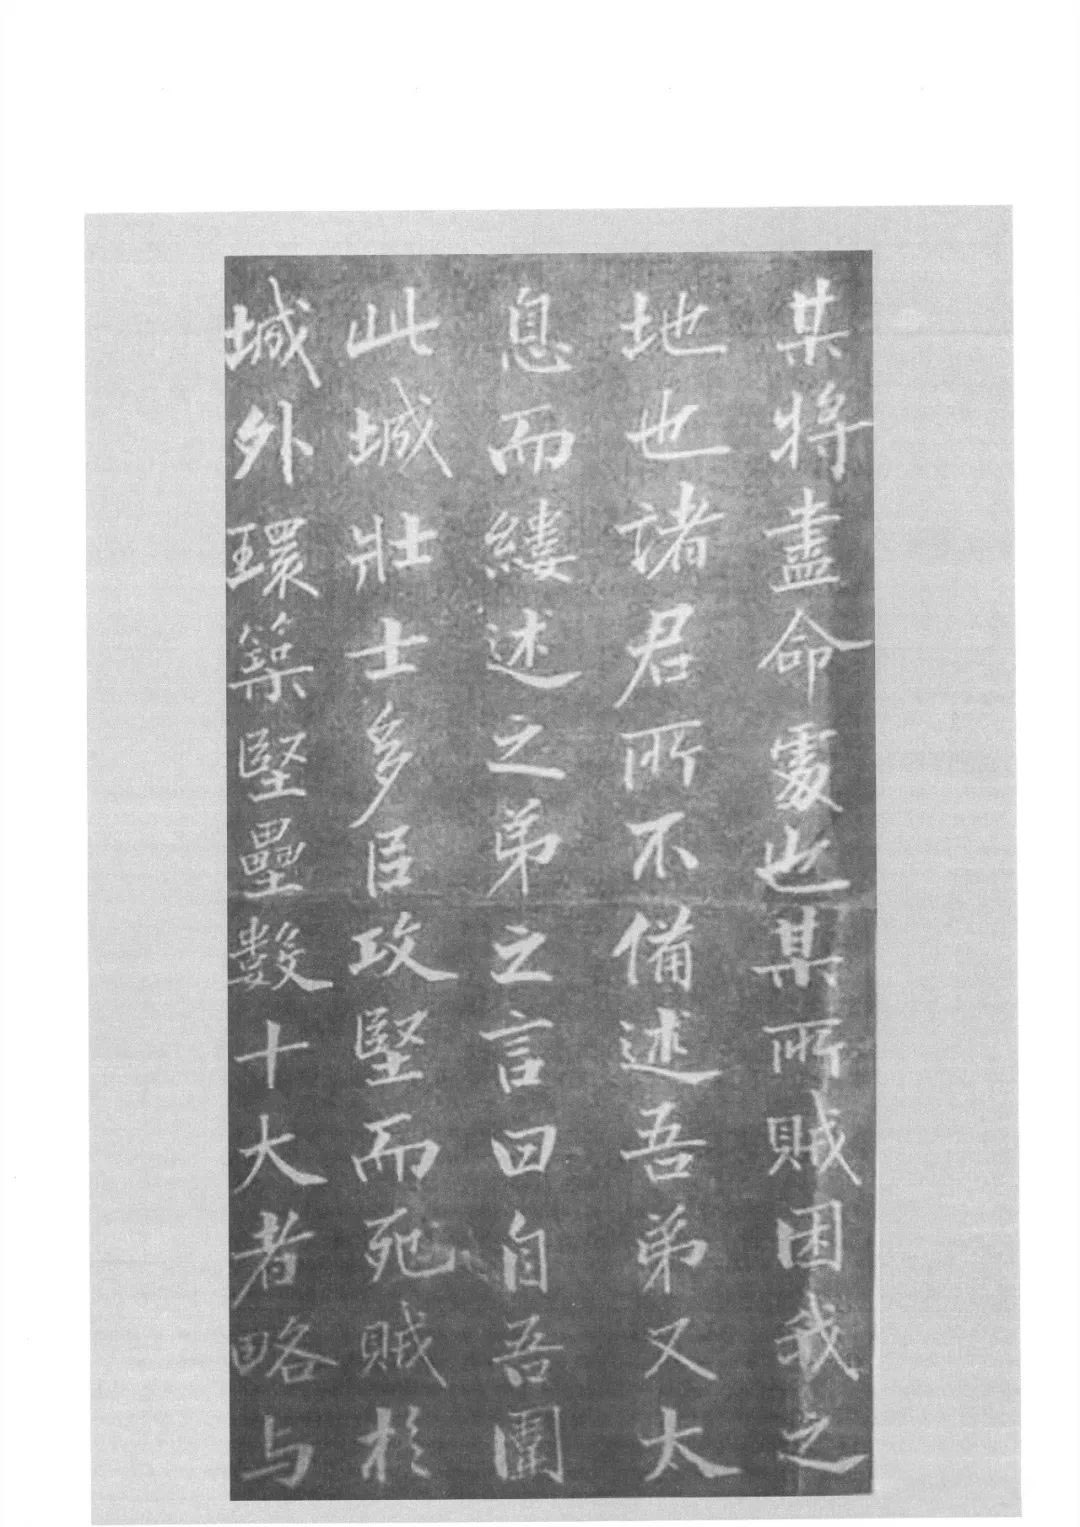 某將盡命處也某所賊困我之
地也諸君所不備述吾弟又太
息而縷述之弟之言曰自吾圍
此城壯士多臣攻堅而死賊於
城外環築堅壘數十大者略与